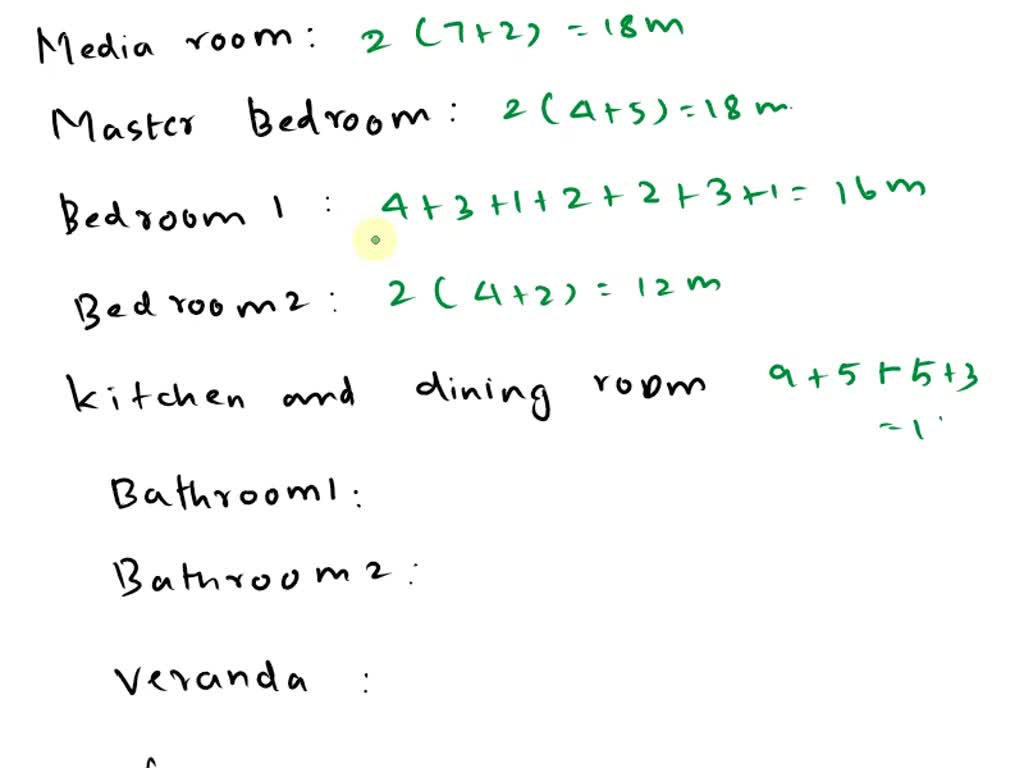 Media room: 2 (7+2) = 18m
Master Bedroom: 2(4+5)=18 m
Bedroom 1 : 4+3+1+2+2+3+1= 16m
Bedroom2: 2 (4+2) = 12m
kitchen and dining room 9+5+5+3
=1
Bathroom1:
Bathroom2:
Veranda :